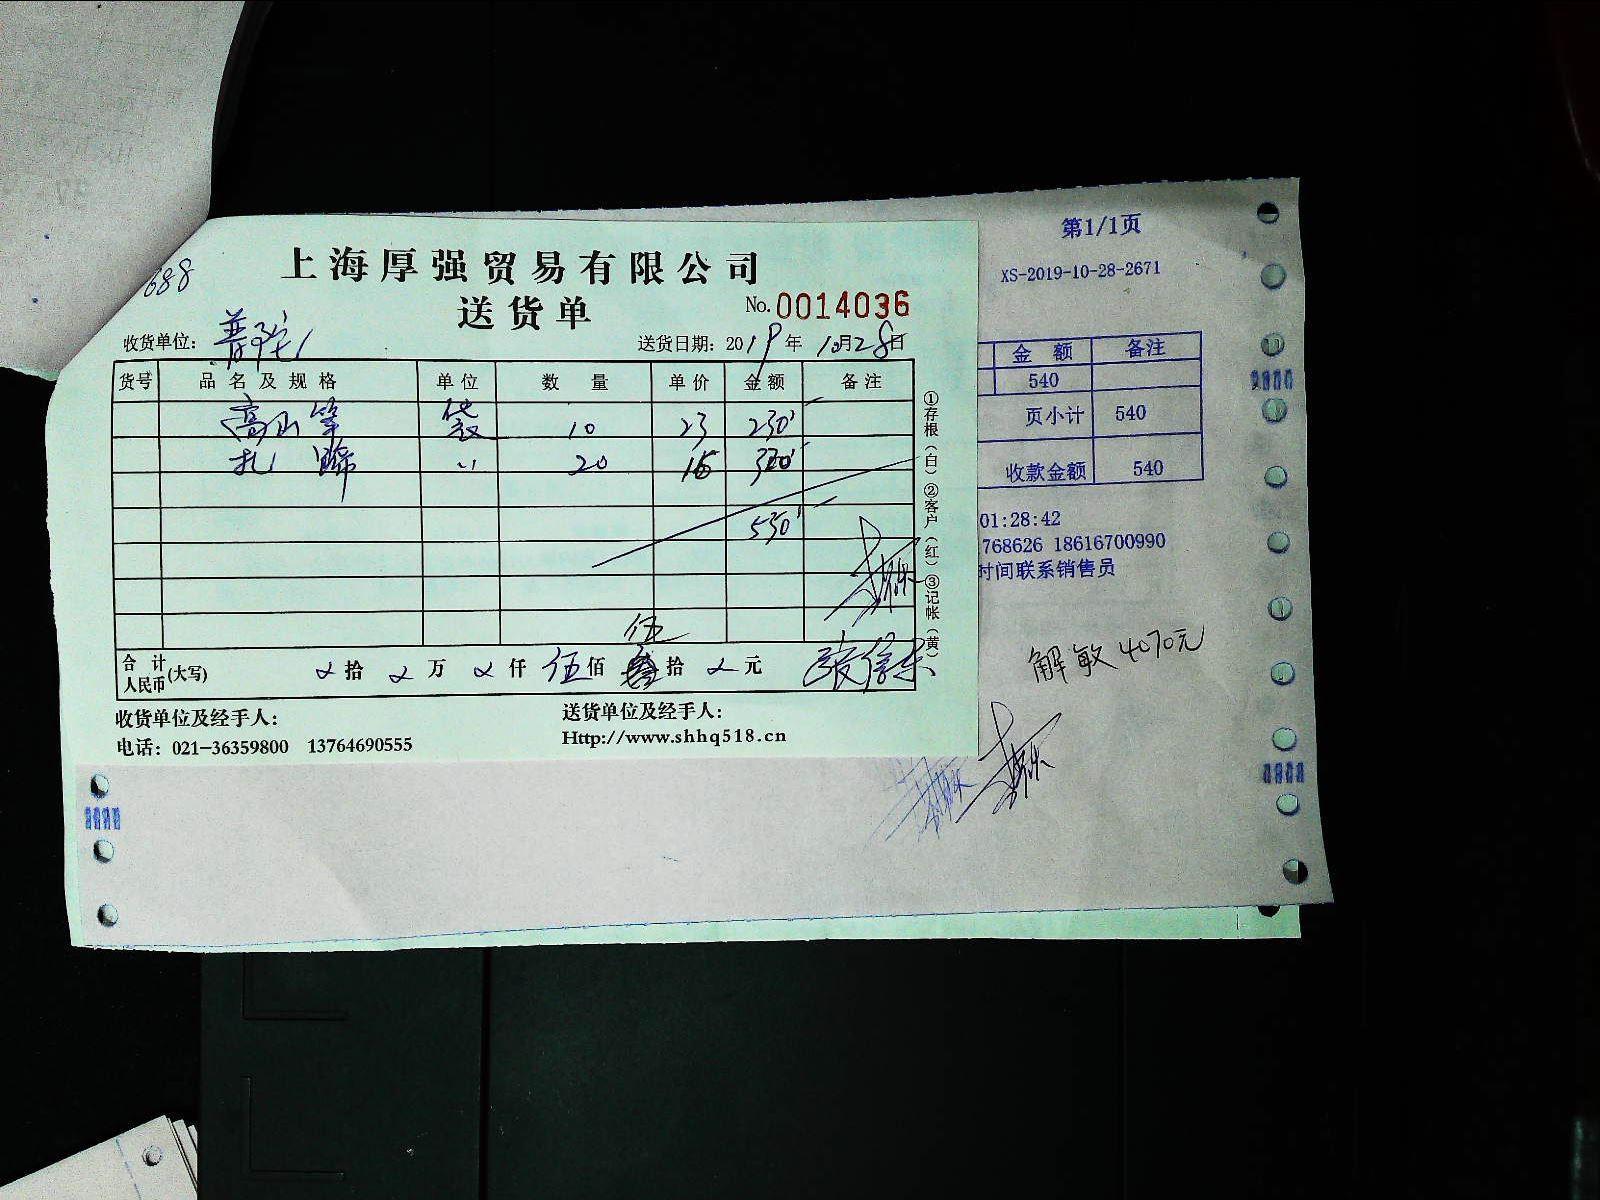 688
上海厚强贸易有限公司
送货单
No. 0014036
收货单位: 普陀
送货日期: 2019年10月28日
货号 品名及规格 单位 数量 单价 金额 备注
高山笋 袋 10 23 230
扎蹄 〃 20 16 320
550
合计人民币(大写) 拾 万 仟 伍佰 伍拾 元
张信东
收货单位及经手人:
送货单位及经手人:
电话: 021-36359800 13764690555
Http://www.shhq518.cn
①存根(白)②客户(红)③记帐(黄)
第1/1页
XS-2019-10-28-2671
金额 备注
540
页小计 540
收款金额 540
01:28:42
768626 18616700990
时间联系销售员
解敏 4070元